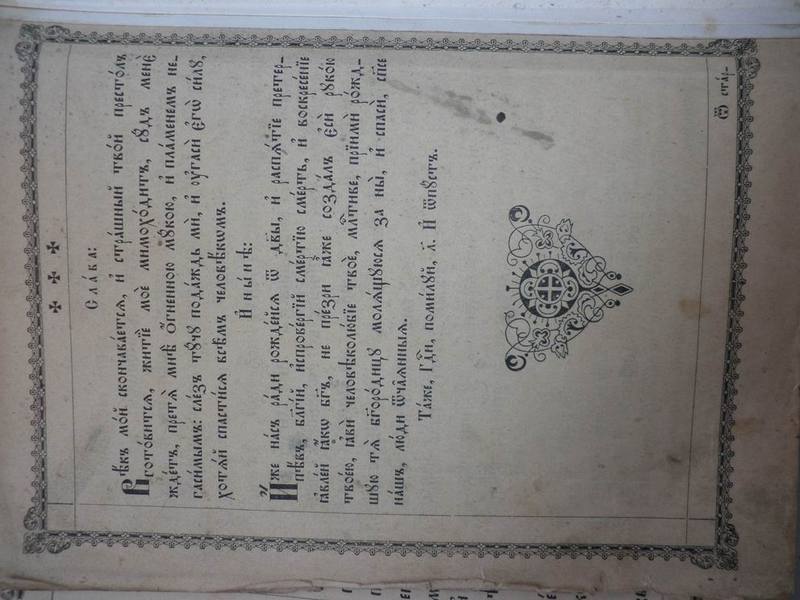 Сла́ва:
Вѣ́къ мо́й сконча́ваетсѧ, и҆ стра́шный тво́й престо́лъ
гото́витсѧ, житїѐ моѐ мимохо́дитъ, сꙋ́дъ менѐ
жде́тъ, претѧ̀ мнѣ̀ ѻ҆́гненною мꙋ́кою, и҆ пла́менемъ не-
гаси́мымъ: сле́зъ тꙋ́чꙋ пода́ждь мѝ, и҆ ᲂу҆гасѝ є҆гѡ̀ си́лꙋ,
хотѧ́й спасти́сѧ всѣ̑мъ человѣ́кѡмъ.
И҆ ны́нѣ:
И҆́же на́съ ра́ди рожде́йсѧ ѿ дв҃ы, и҆ распѧ́тїе претер-
пѣ́въ, бл҃гі́й, и҆спрове́ргїй сме́ртїю сме́рть, и҆ воскресе́нїе
ꙗ҆вле́й ꙗ҆́кѡ бг҃ъ, не пре́зри ꙗ҆̀же созда́лъ є҆сѝ рꙋко́ю
твое́ю, ꙗ҆вѝ человѣколю́бїе твоѐ, млⷭ҇тиве, прїимѝ ро́жд-
шꙋю тѧ̀ бг҃оро́дицꙋ молѧ́щꙋюсѧ за ны̀, и҆ спасѝ, сп҃се
на́шъ, лю́ди ѿча̑ѧнныѧ.
Та́же, гдⷭ҇и, поми́лꙋй, л҃. И҆ ѿпꙋ́стъ.
Ѿ ста́р-